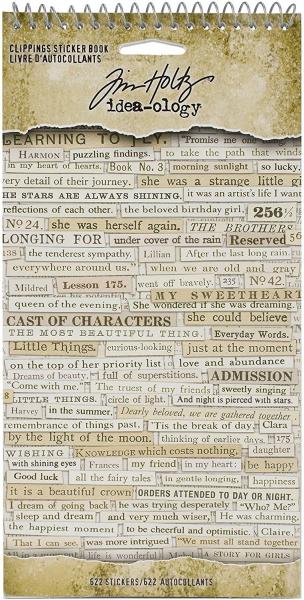 CLIPPINGS STICKER BOOK
LIVRE D'AUTOCOLLANTS
Tim Holtz
idea-ology
LEARNING TO FLY. "Promise me one
HARMON puzzling findings. to take the path that winds
in my heart of hearts. Book No. 3 morning sunlight so lucky.
very detail of their journey. she was a strange little gi
THE STARS ARE ALWAYS SHINING. it was an artist's eyes that
reflections of each other. the beloved birthday girl. 256½
No 24. she was herself again. THE BROTHERS
LONGING FOR under cover of the rain Reserved
the tenderest sympathy. Lillian After the last long rain
everywhere around us." when we are old and gray
Mildred Lesson 175. went off by yourself 235 No 42.
MY SWEETHEAR
Queen of the evening. She wondered if she was dreaming.
CAST OF CHARACTERS she could believe
THE MOST BEAUTIFUL THING. Everyday Words.
Little Things. curious-looking just at the moment
on the top of her priority list love and abundance
Dreams of beauty. full of superstitions. ADMISSION
"Come with me." The truest of my friends sweetly singing
LITTLE THINGS. circle of light. And night is pierced with stars.
Harvey in the summer, Dearly beloved, we are gathered together
remembrance of things past. 'Tis the break of day. Clara
by the light of the moon. thinking of earlier days. 175
WISHING KNOWLEDGE which costs nothing. daughter
with shining eyes Frances my friend in my heart: be happy
Good luck all the fairy tales in gentle longing, happiness
it is a beautiful crown ORDERS ATTENDED TO DAY OR NIGHT.
I dream of going back he was trying desperately "Who? Me?"
sleep and dream very much alive. He was charming.
the happiest moment to be cheerful and optimistic. Claire.
That I can see. was more intrigued "We must all stand together
in life is wonderful. Make A STORY FOR GIRLS
622 STICKERS/622 AUTOCOLLANTS